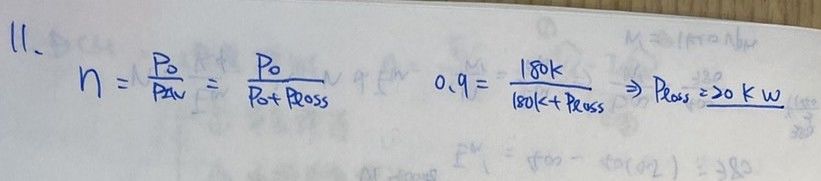 11.
η = Po/PIN = Po/(Po+Ploss)    0.9 = 180k/(180k+Ploss) ⇒ Ploss = 20 KW